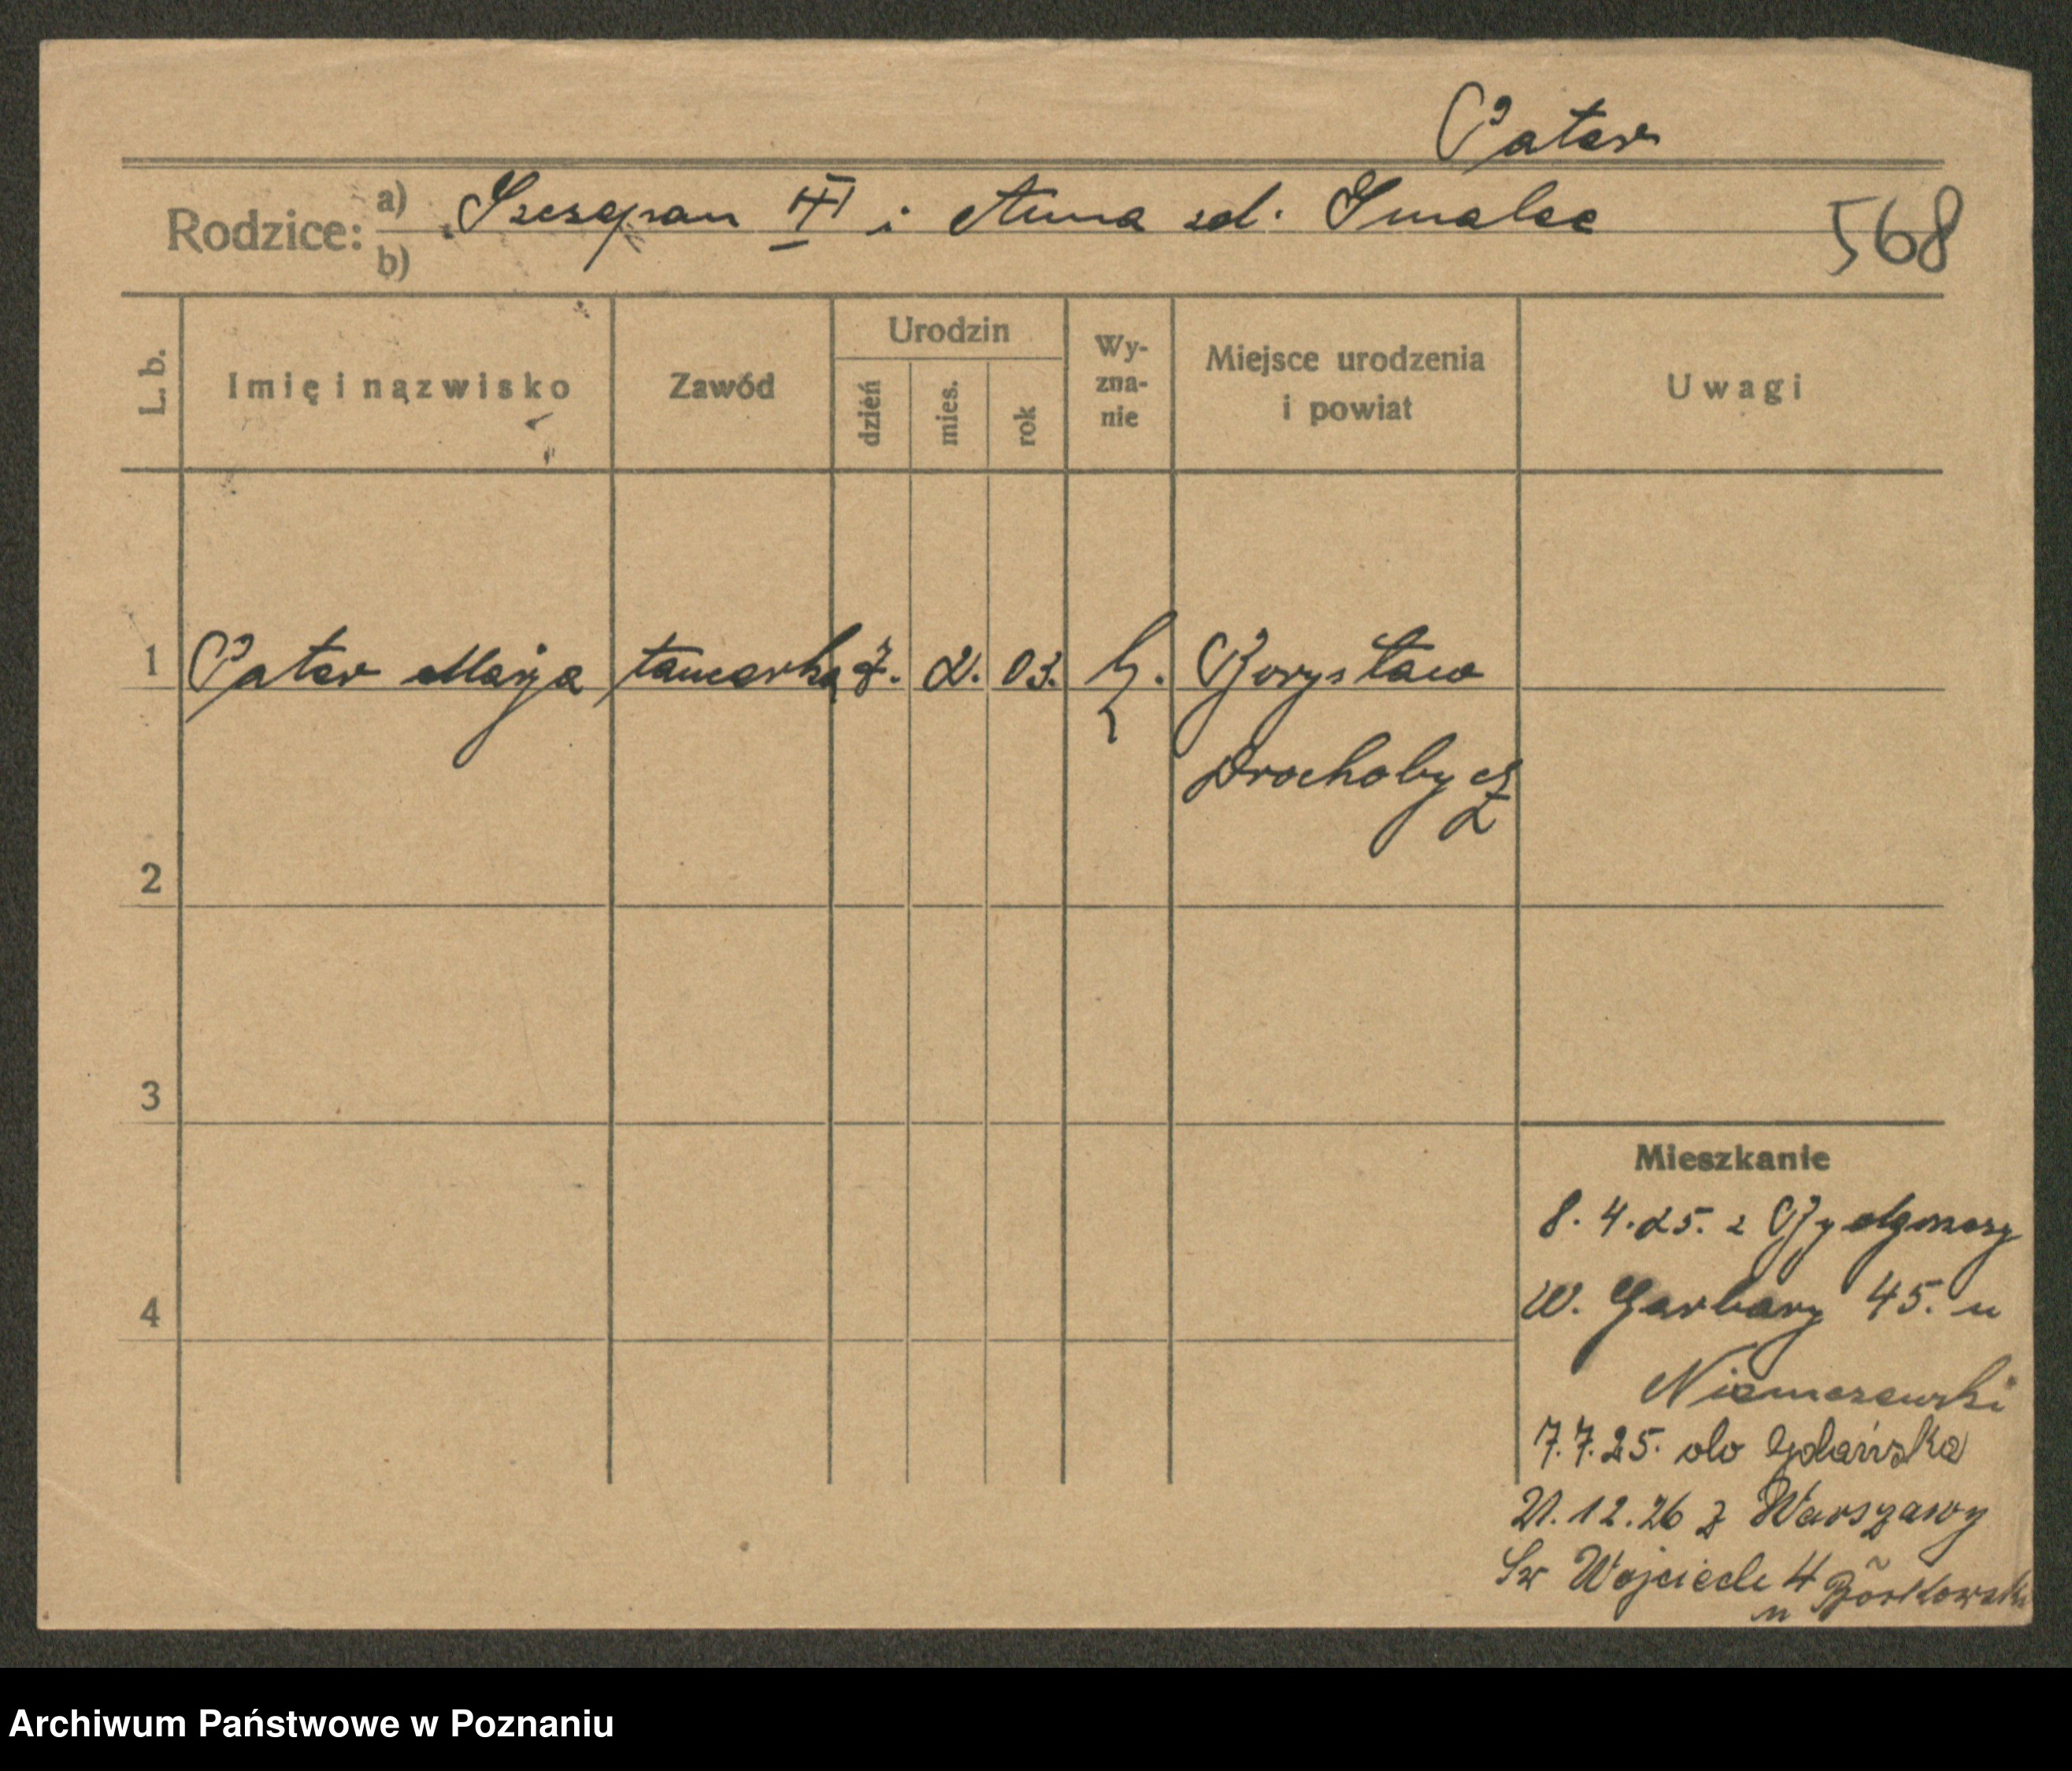 Pater
Rodzice: a) Szczepan i Anna zd. Smalec
b)
568
L. b.
Imię i nazwisko
Zawód
Urodzin
dzień
mies.
rok
Wy-
zna-
nie
Miejsce urodzenia
i powiat
Uwagi
1 Pater Marja tancerka 7. 2. 03. k. Borysław
Drochobycz
2
3
4
Mieszkanie
8. 4. 25. z Bydgoszczy
W. Garbary 45. u
Niemczewski
7. 7. 25. do Gdańska
21. 12. 26 z Warszawy
Św Wojciech 4
u Borkowski
Archiwum Państwowe w Poznaniu